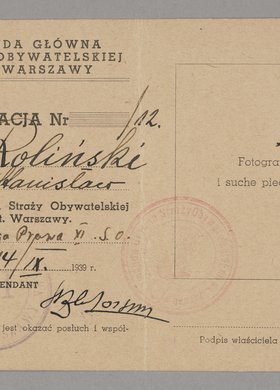 DA GŁÓWNA
OBYWATELSKIEJ
WARSZAWY
ACJA Nr /12.
Roliński
Stanisław
Straży Obywatelskiej
t. Warszawy.
Prawa XI S.O.
14/IX. 1939 r.
ENDANT
jest okazać posłuch i współ-
Fotogra
i suche piec
Podpis właściciela